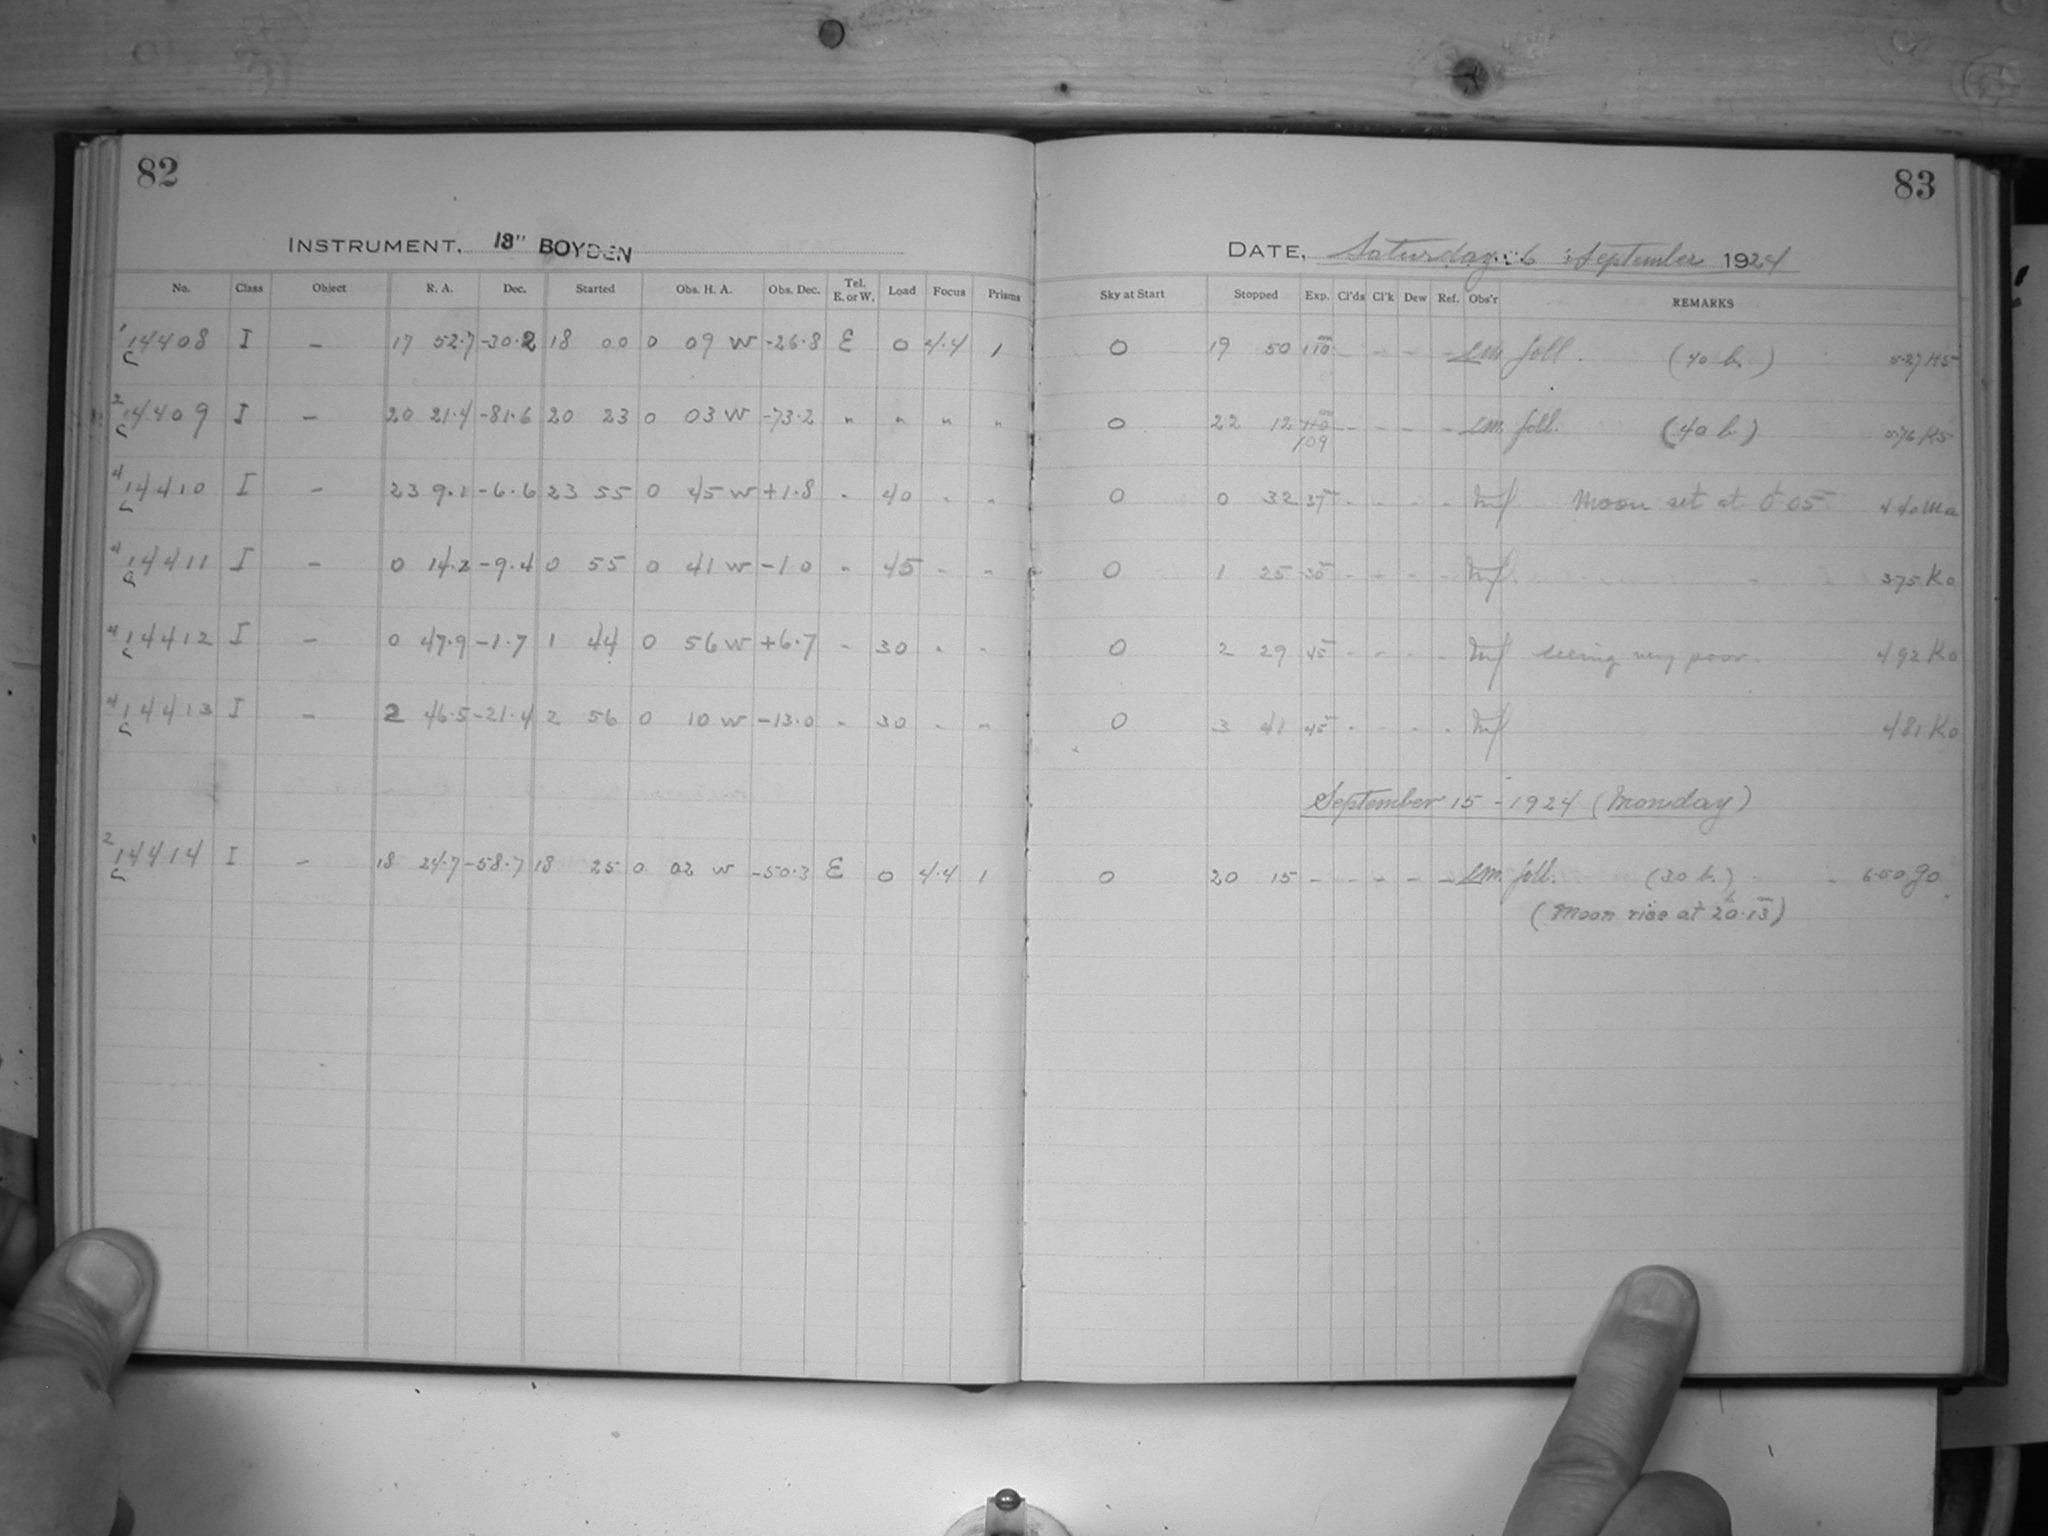 82
83
INSTRUMENT, 13" BOYDEN
DATE, Saturday 6 September 1924
No. Class Object R. A. Dec. Started Obs. H. A. Obs. Dec. Tel. E. or W. Load Focus Prisms Sky at Start Stopped Exp. Cl'ds Cl'k Dew Ref. Obs'r REMARKS
1 14408 I – 17 52.7 -30.2 18 00 0 09 W -26.8 E 0 4.4 1 0 19 50 110m - - - - LM foll. (40 b.) 5.27 K5
c
2 14409 I – 20 21.4 -81.6 20 23 0 03 W -73.2 " " " " 0 22 12 110m - - - - LM foll. (40 b.) 5.76 K5
c 109
4 14410 I – 23 9.1 -6.6 23 55 0 45 W +1.8 - 40 - - 0 0 32 37m - - - - Moon set at 0h 05m 4.40 Ma
c
4 14411 I – 0 14.3 -9.4 0 55 0 41 W -1.0 " 45 - - 0 1 25 30 - - - - 3.75 K0
c
4 14412 I – 0 47.9 -1.7 1 44 0 56 W +6.7 - 30 - - 0 2 29 45 - - - - seeing very poor. 4.92 K0
c
4 14413 I – 2 46.5 -21.4 2 56 0 10 W -13.0 - 30 - - 0 3 41 45 - - - - 4.81 K0
c
September 15 - 1924 (Monday)
2 14414 I – 18 24.7 -58.7 18 25 0 02 W -50.3 E 0 4.4 1 0 20 15 - - - - - LM. foll. (30 b.) - 6.00 g0
c
(Moon rise at 20h.13m)